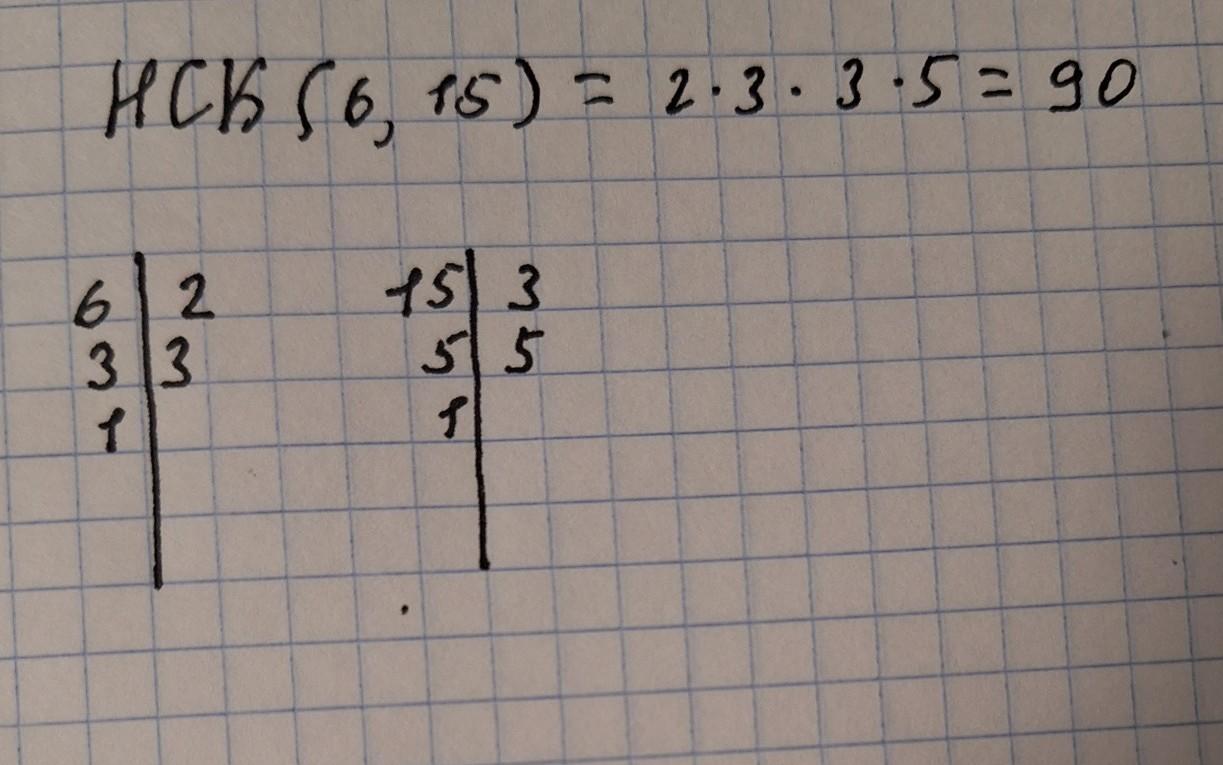 НСК (6, 15) = 2·3·3·5 = 90
6 | 2 15 | 3
3 | 3 5 | 5
1 | 1 |